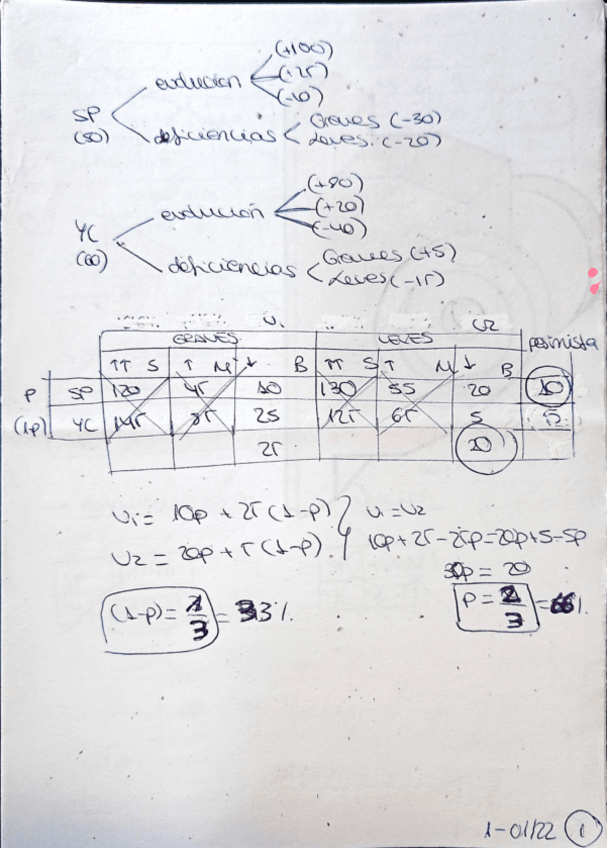 (+100)
evolución (+25)
(-10)
SP
(50) deficiencias Graves (-30)
Leves (-20)
(+80)
evolución (+20)
(-40)
YC
(60) deficiencias Graves (+5)
Leves (-15)
U1 U2
GRAVES LEVES pesimista
↑↑ S ↑ M ↓ B ↑↑ S ↑ M ↓ B
P SP 120 45 10 130 55 20 10
(1-p) YC 145 25 125 65 5
25 20
U1 = 10p + 25(1-p) U1 = U2
U2 = 20p + 5(1-p) 10p + 25 - 25p = 20p + 5 - 5p
30p = 20
(1-p) = 1/3 = 33% P = 2/3 = 66%
1-01/22 1